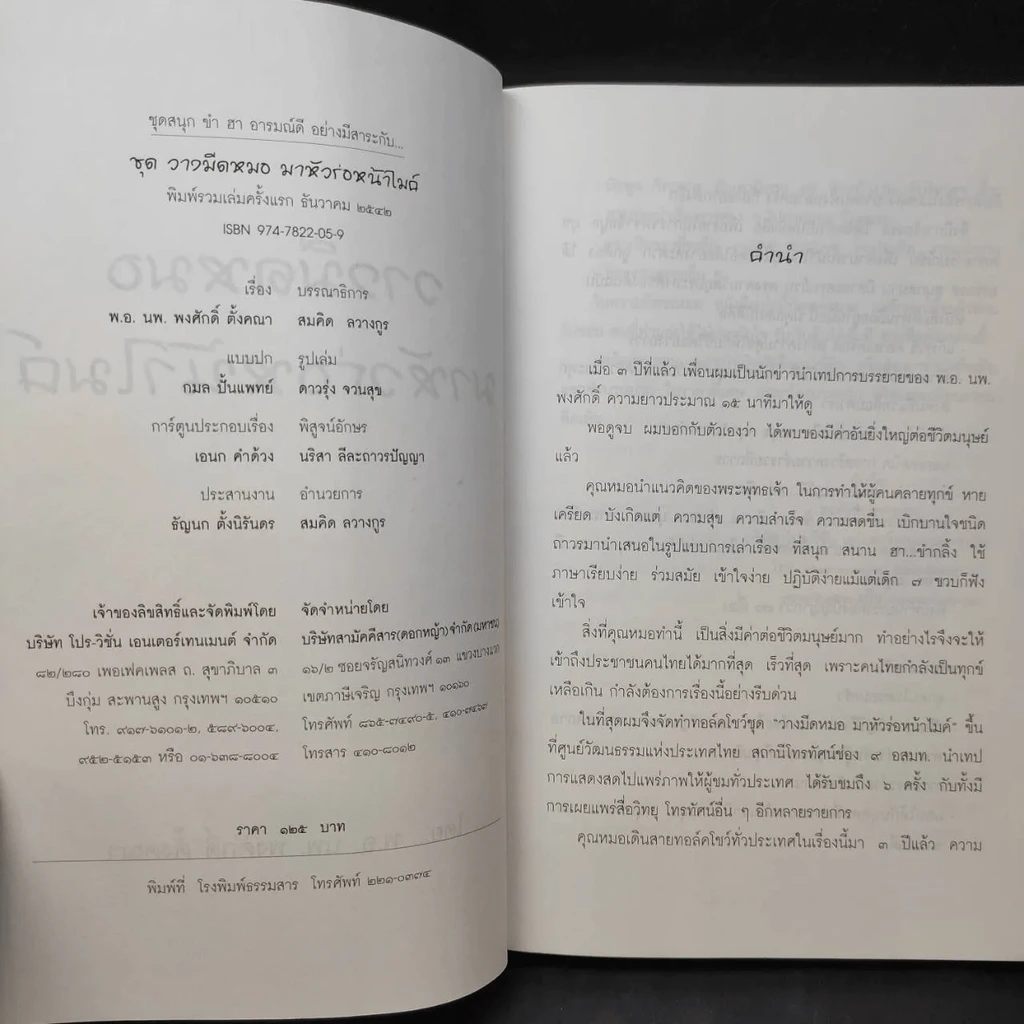 ชุดสนุก ขำ ฮา อารมณ์ดี อย่างมีสาระกับ...
ชุด วางมีดหมอ มาหัวร่อหน้าไมค์
พิมพ์รวมเล่มครั้งแรก ธันวาคม ๒๕๔๒
ISBN 974-7822-05-9
เรื่อง บรรณาธิการ
พ.อ. นพ. พงศักดิ์ ตั้งคณา สมคิด ลวางกูร
แบบปก รูปเล่ม
กมล ปั้นแพทย์ ดาวรุ่ง จวนสุข
การ์ตูนประกอบเรื่อง พิสูจน์อักษร
เอนก คำด้วง นริสา ลีละถาวรปัญญา
ประสานงาน อำนวยการ
ธัญนก ตั้งนิรันดร สมคิด ลวางกูร
เจ้าของลิขสิทธิ์และจัดพิมพ์โดย จัดจำหน่ายโดย
บริษัท โปร-วิชั่น เอนเตอร์เทนเมนต์ จำกัด บริษัทสามัคคีสาร(ดอกหญ้า)จำกัด(มหาชน)
๘๒/๒๘๐ เพอเฟคเพลส ถ. สุขาภิบาล ๓ ๑๖/๒ ซอยจรัญสนิทวงศ์ ๑๓ แขวงบางแวก
บึงกุ่ม สะพานสูง กรุงเทพฯ ๑๐๕๑๐ เขตภาษีเจริญ กรุงเทพฯ ๑๐๑๖๐
โทร. ๙๑๗-๖๑๐๑-๒, ๕๘๙-๖๐๐๔, โทรศัพท์ ๘๖๕-๗๔๙๐-๕, ๔๑๐-๗๔๖๙
๙๕๒-๕๑๕๓ หรือ ๐๑-๖๓๘-๘๐๐๔ โทรสาร ๔๑๐-๘๐๑๒
ราคา ๑๒๕ บาท
พิมพ์ที่ โรงพิมพ์ธรรมสาร โทรศัพท์ ๒๒๑-๐๓๗๔
คำนำ
เมื่อ ๓ ปีที่แล้ว เพื่อนผมเป็นนักข่าวนำเทปการบรรยายของ พ.อ. นพ.
พงศักดิ์ ความยาวประมาณ ๑๕ นาทีมาให้ดู
พอดูจบ ผมบอกกับตัวเองว่า ได้พบของมีค่าอันยิ่งใหญ่ต่อชีวิตมนุษย์
แล้ว
คุณหมอนำแนวคิดของพระพุทธเจ้า ในการทำให้ผู้คนคลายทุกข์ หาย
เครียด บังเกิดแต่ ความสุข ความสำเร็จ ความสดชื่น เบิกบานใจชนิด
ถาวรมานำเสนอในรูปแบบการเล่าเรื่อง ที่สนุก สนาน ฮา...ขำกลิ้ง ใช้
ภาษาเรียบง่าย ร่วมสมัย เข้าใจง่าย ปฏิบัติง่ายแม้แต่เด็ก ๗ ขวบก็ฟัง
เข้าใจ
สิ่งที่คุณหมอทำนี้ เป็นสิ่งมีค่าต่อชีวิตมนุษย์มาก ทำอย่างไรจึงจะให้
เข้าถึงประชาชนคนไทยได้มากที่สุด เร็วที่สุด เพราะคนไทยกำลังเป็นทุกข์
เหลือเกิน กำลังต้องการเรื่องนี้อย่างรีบด่วน
ในที่สุดผมจึงจัดทำทอล์คโชว์ชุด "ว่างมีดหมอ มาหัวร่อหน้าไมค์" ขึ้น
ที่ศูนย์วัฒนธรรมแห่งประเทศไทย สถานีโทรทัศน์ช่อง ๙ อสมท. นำเทป
การแสดงสดไปแพร่ภาพให้ผู้ชมทั่วประเทศ ได้รับชมถึง ๖ ครั้ง กับทั้งมี
การเผยแพร่สื่อวิทยุ โทรทัศน์อื่น ๆ อีกหลายรายการ
คุณหมอเดินสายทอล์คโชว์ทั่วประเทศในเรื่องนี้มา ๓ ปีแล้ว ความ